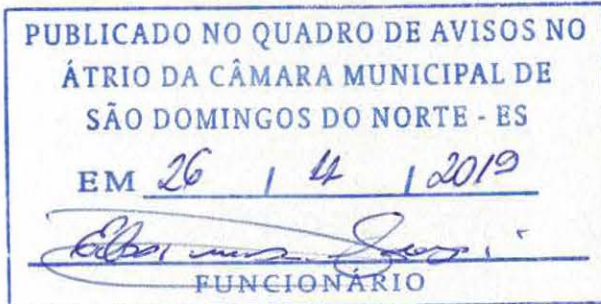 PUBLICADO NO QUADRO DE AVISOS NO
ÁTRIO DA CÂMARA MUNICIPAL DE
SÃO DOMINGOS DO NORTE - ES
EM 26 / / 2019
FUNCIONÁRIO